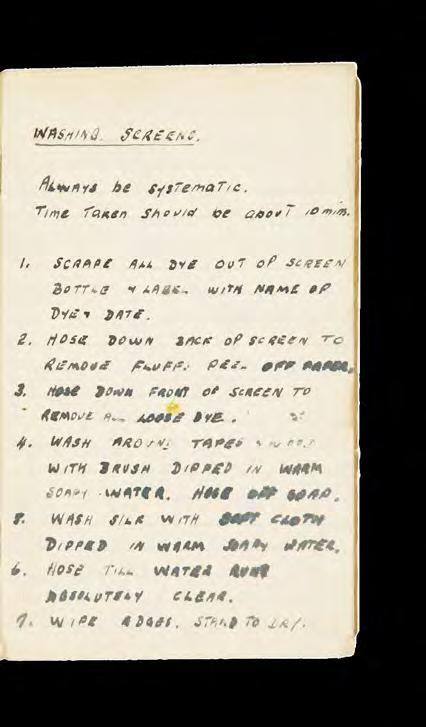 WASHING. SCREENS.
Always be systematic.
Time Taken should be about 10 min.
1. SCRAPE ALL DYE OUT OF SCREEN
BOTTLE & LABEL WITH NAME OF
DYE & DATE.
2. HOSE DOWN BACK OF SCREEN TO
REMOVE FLUFF. PEEL OFF PAPER.
3. HOSE DOWN FRONT OF SCREEN TO
REMOVE ALL LOOSE DYE.
4. WASH AROUND TAPES &
WITH BRUSH DIPPED IN WARM
SOAPY WATER. HOSE OFF SOAP.
5. WASH SILK WITH SOFT CLOTH
DIPPED IN WARM SOAPY WATER.
6. HOSE TILL WATER RUNS
ABSOLUTELY CLEAR.
7. WIPE EDGES. STAND TO DRY.